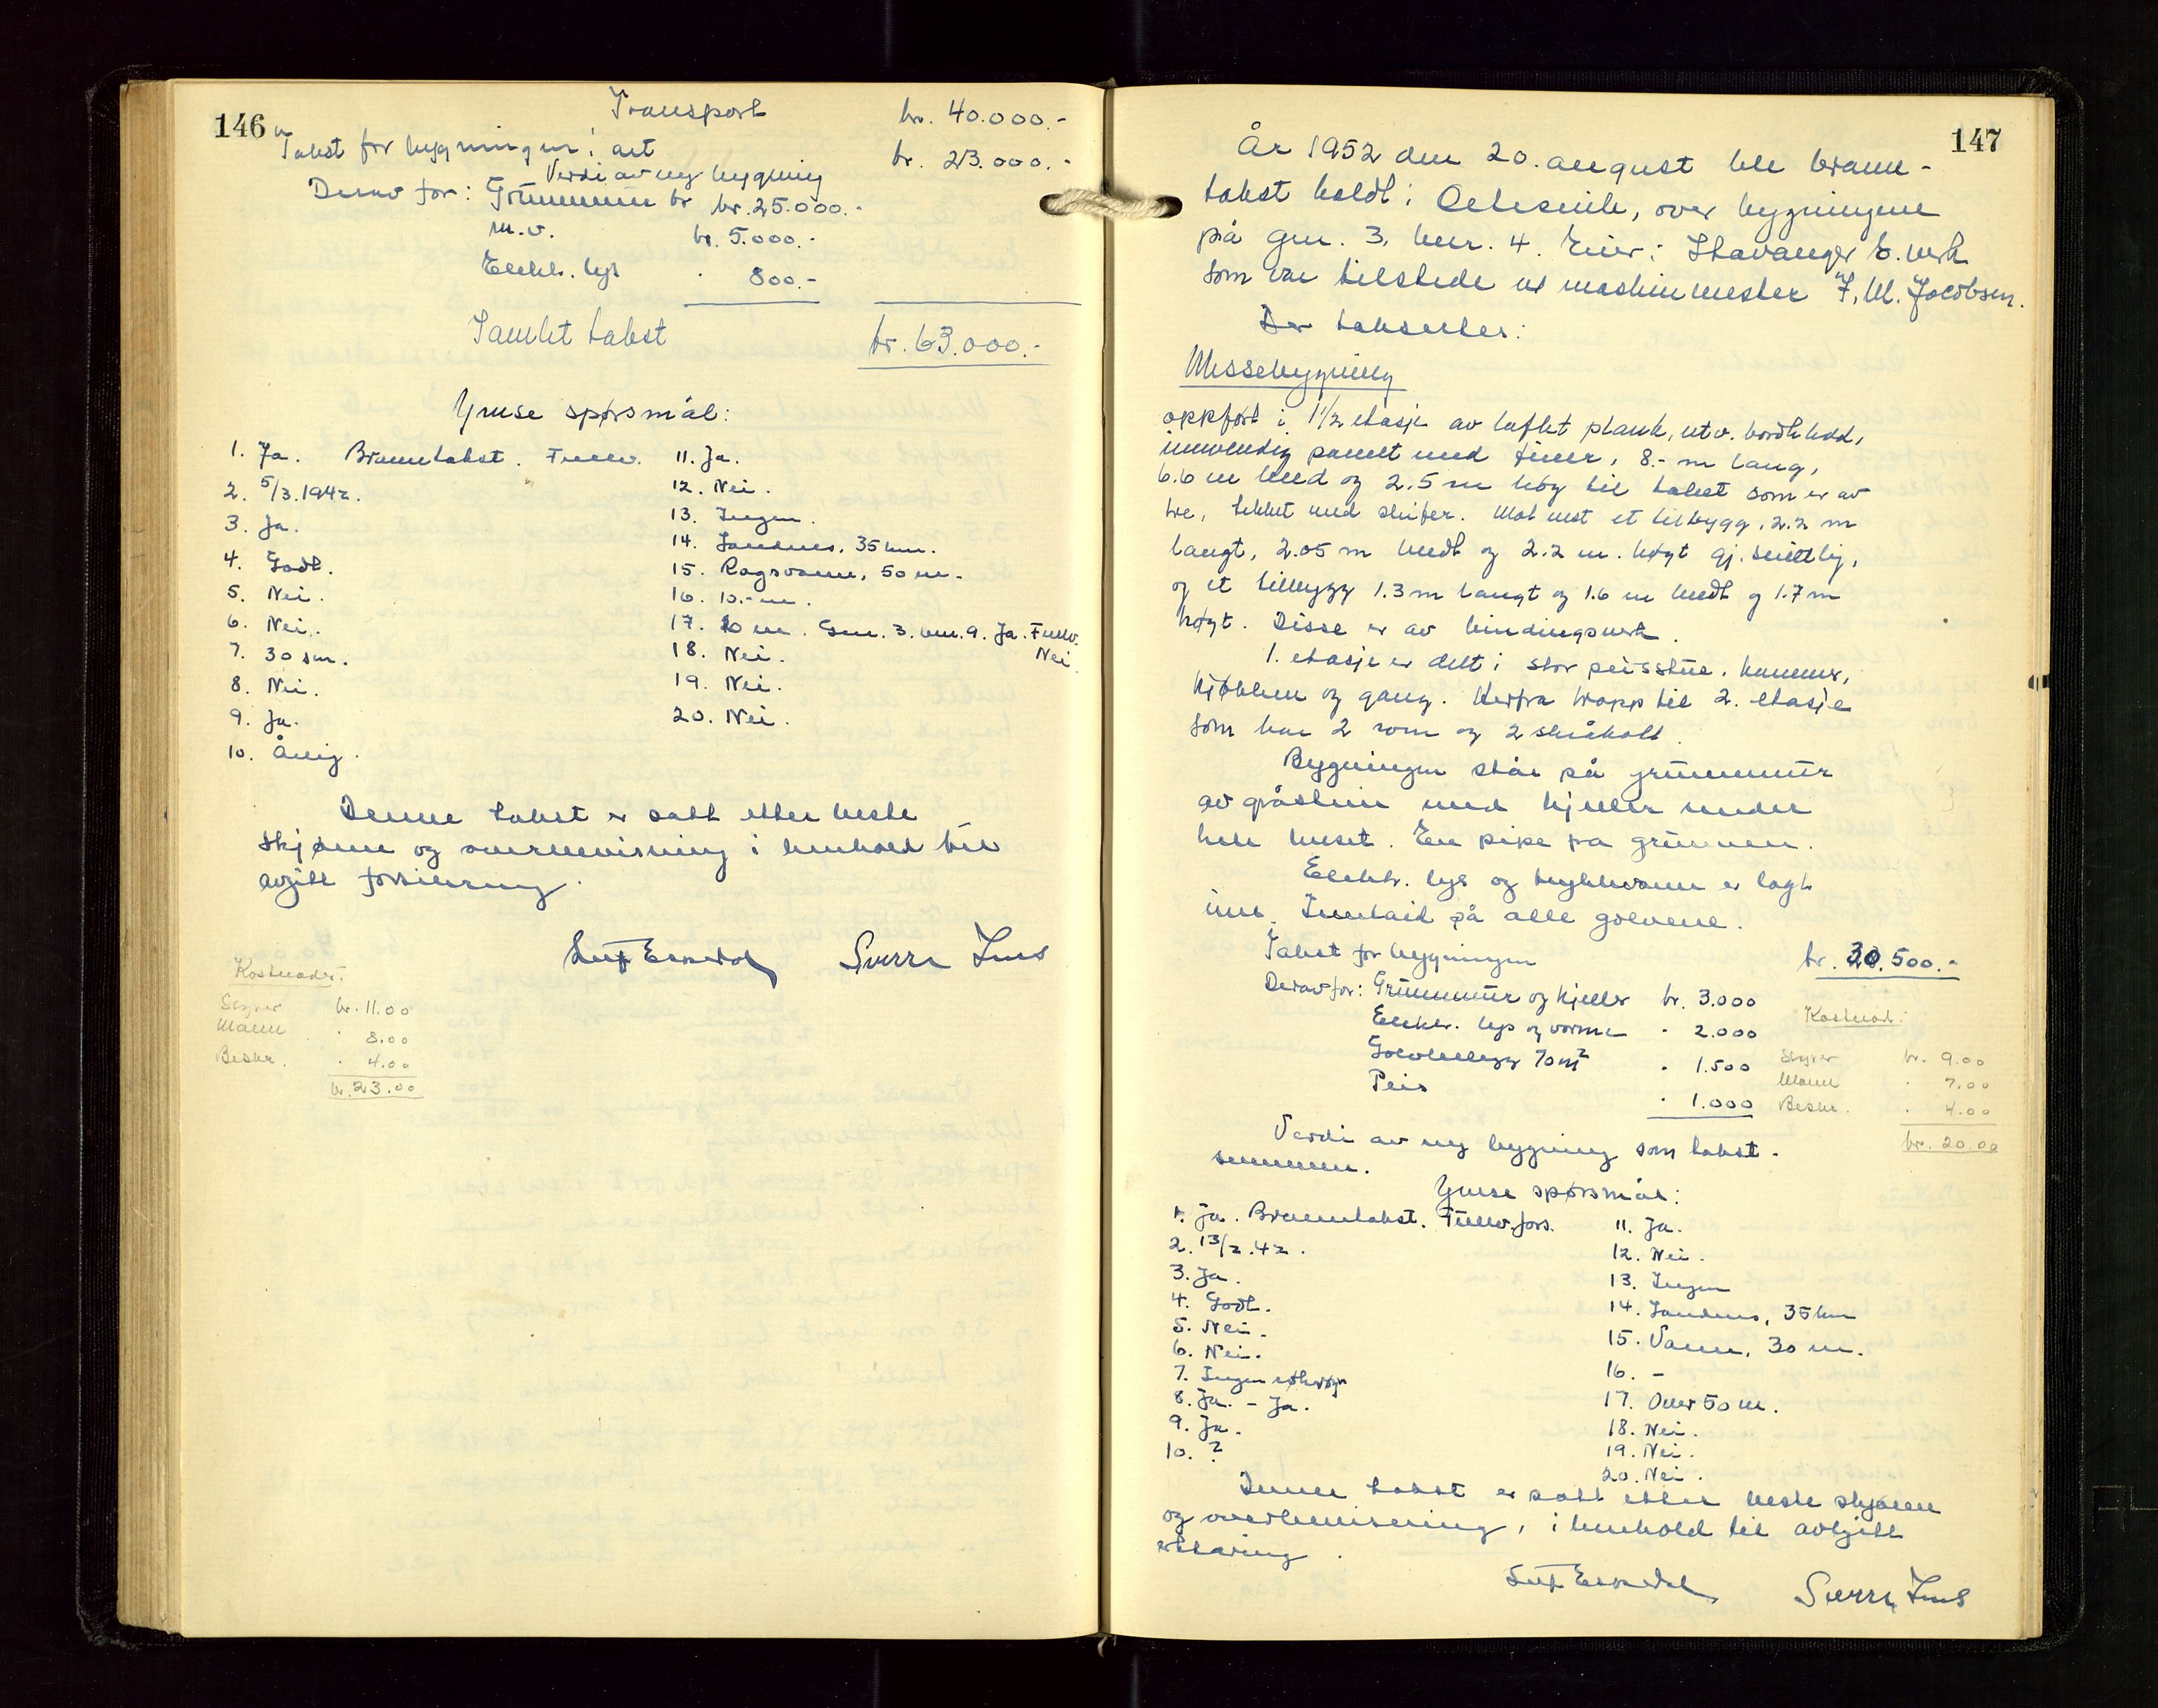 146
Transport kr. 40.000.-
Takst for bygningen i alt kr. 23.000.-
Verdi av ny bygning kr. 25.000.-
Derav for: Grunnmur kr
m.v. kr. 5.000.-
Elektr. lys 800.-
Samlet takst kr. 63.000.-
Ymse spørsmål:
1. Ja. Branntakst. Fullv.
2. 5/3.1942.
3. Ja.
4. Godt.
5. Nei.
6. Nei.
7. 30 sm.
8. Nei.
9. Ja.
10. Årlig.
11. Ja.
12. Nei.
13. Ingen.
14. Sandnes, 35 km.
15. Ragsvann, 50 m.
16. 10.- m.
17. 20 m. Gnr. 3. bnr. 9. Ja. Fullv.
Nei.
18. Nei.
19. Nei.
20. Nei.
Denne takst er satt etter beste
skjønn og overbevisning i henhold til
avgitt forsikring.
Leif Eskedal Sverre
Kostnader:
Styrer kr. 11.00
Mann . 8.00
Beskr. . 4.00
kr. 23.00
147
År 1952 den 20. august ble brann-
takst holdt i Oltesvik, over bygningene
på gnr. 3, bnr. 4. Eier: Stavanger E. verk
som var tilstede ved maskinmester F. M. Jacobsen.
Der takseres:
Messebygning
oppført i 1 1/2 etasje av laftet plank, utv. bordkledd,
innvendig panelt med finer, 8.- m lang,
6.6 m bred og 2.5 m høy til taket som er av
tre, tekket med skifer. Mot vest et tilbygg, 2.2 m
langt, 2.05 m bredt og 2.2 m. høgt gj. snittlig,
og et tilbygg 1.3 m langt og 1.6 m bredt og 1.7 m
høgt. Disse er av bindingsverk.
1. etasje er delt i stor peisstue, kammer,
kjøkken og gang. Herfra trapp til 2. etasje
som har 2 rom og 2 skråkott.
Bygningen står på grunnmur
av gråstein med kjeller under
hele huset. En pipe fra grunnen.
Elektr. lys og trykkvann er lagt
inn. Innlaid på alle golvene.
Takst for bygningen kr. 30.500.-
Derav for: Grunnmur og kjeller kr. 3.000
Elektr. lys og varme . 2.000
Golvbelegg 70 m² . 1.500
Peis . 1.000
Kostnad:
Styrer kr. 9.00
Mann . 7.00
Beskr. . 4.00
kr. 20.00
Verdi av ny bygning som takst-
summen.
Ymse spørsmål:
1. Ja. Branntakst. Fullv. fors.
2. 13/2.42.
3. Ja.
4. Godt.
5. Nei.
6. Nei.
7. Ingen
8. Ja. - Ja.
9. Ja.
10. ?
11. Ja.
12. Nei.
13. Ingen
14. Sandnes, 35 km
15. Vann, 30 m.
16. -
17. Over 50 m.
18. Nei.
19. Nei.
20. Nei.
Denne takst er satt etter beste skjønn
og overbevisning, i henhold til avgitt
erklæring.
Leif Eskedal Sverre